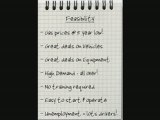 Feasibility
- Gas prices @ 5 year low!
- Great deals on Vehicles
- Great deals on Equipment
- High Demand - all over!
- No training required
- Easy to start & operate
- Unemployment = lots drivers!